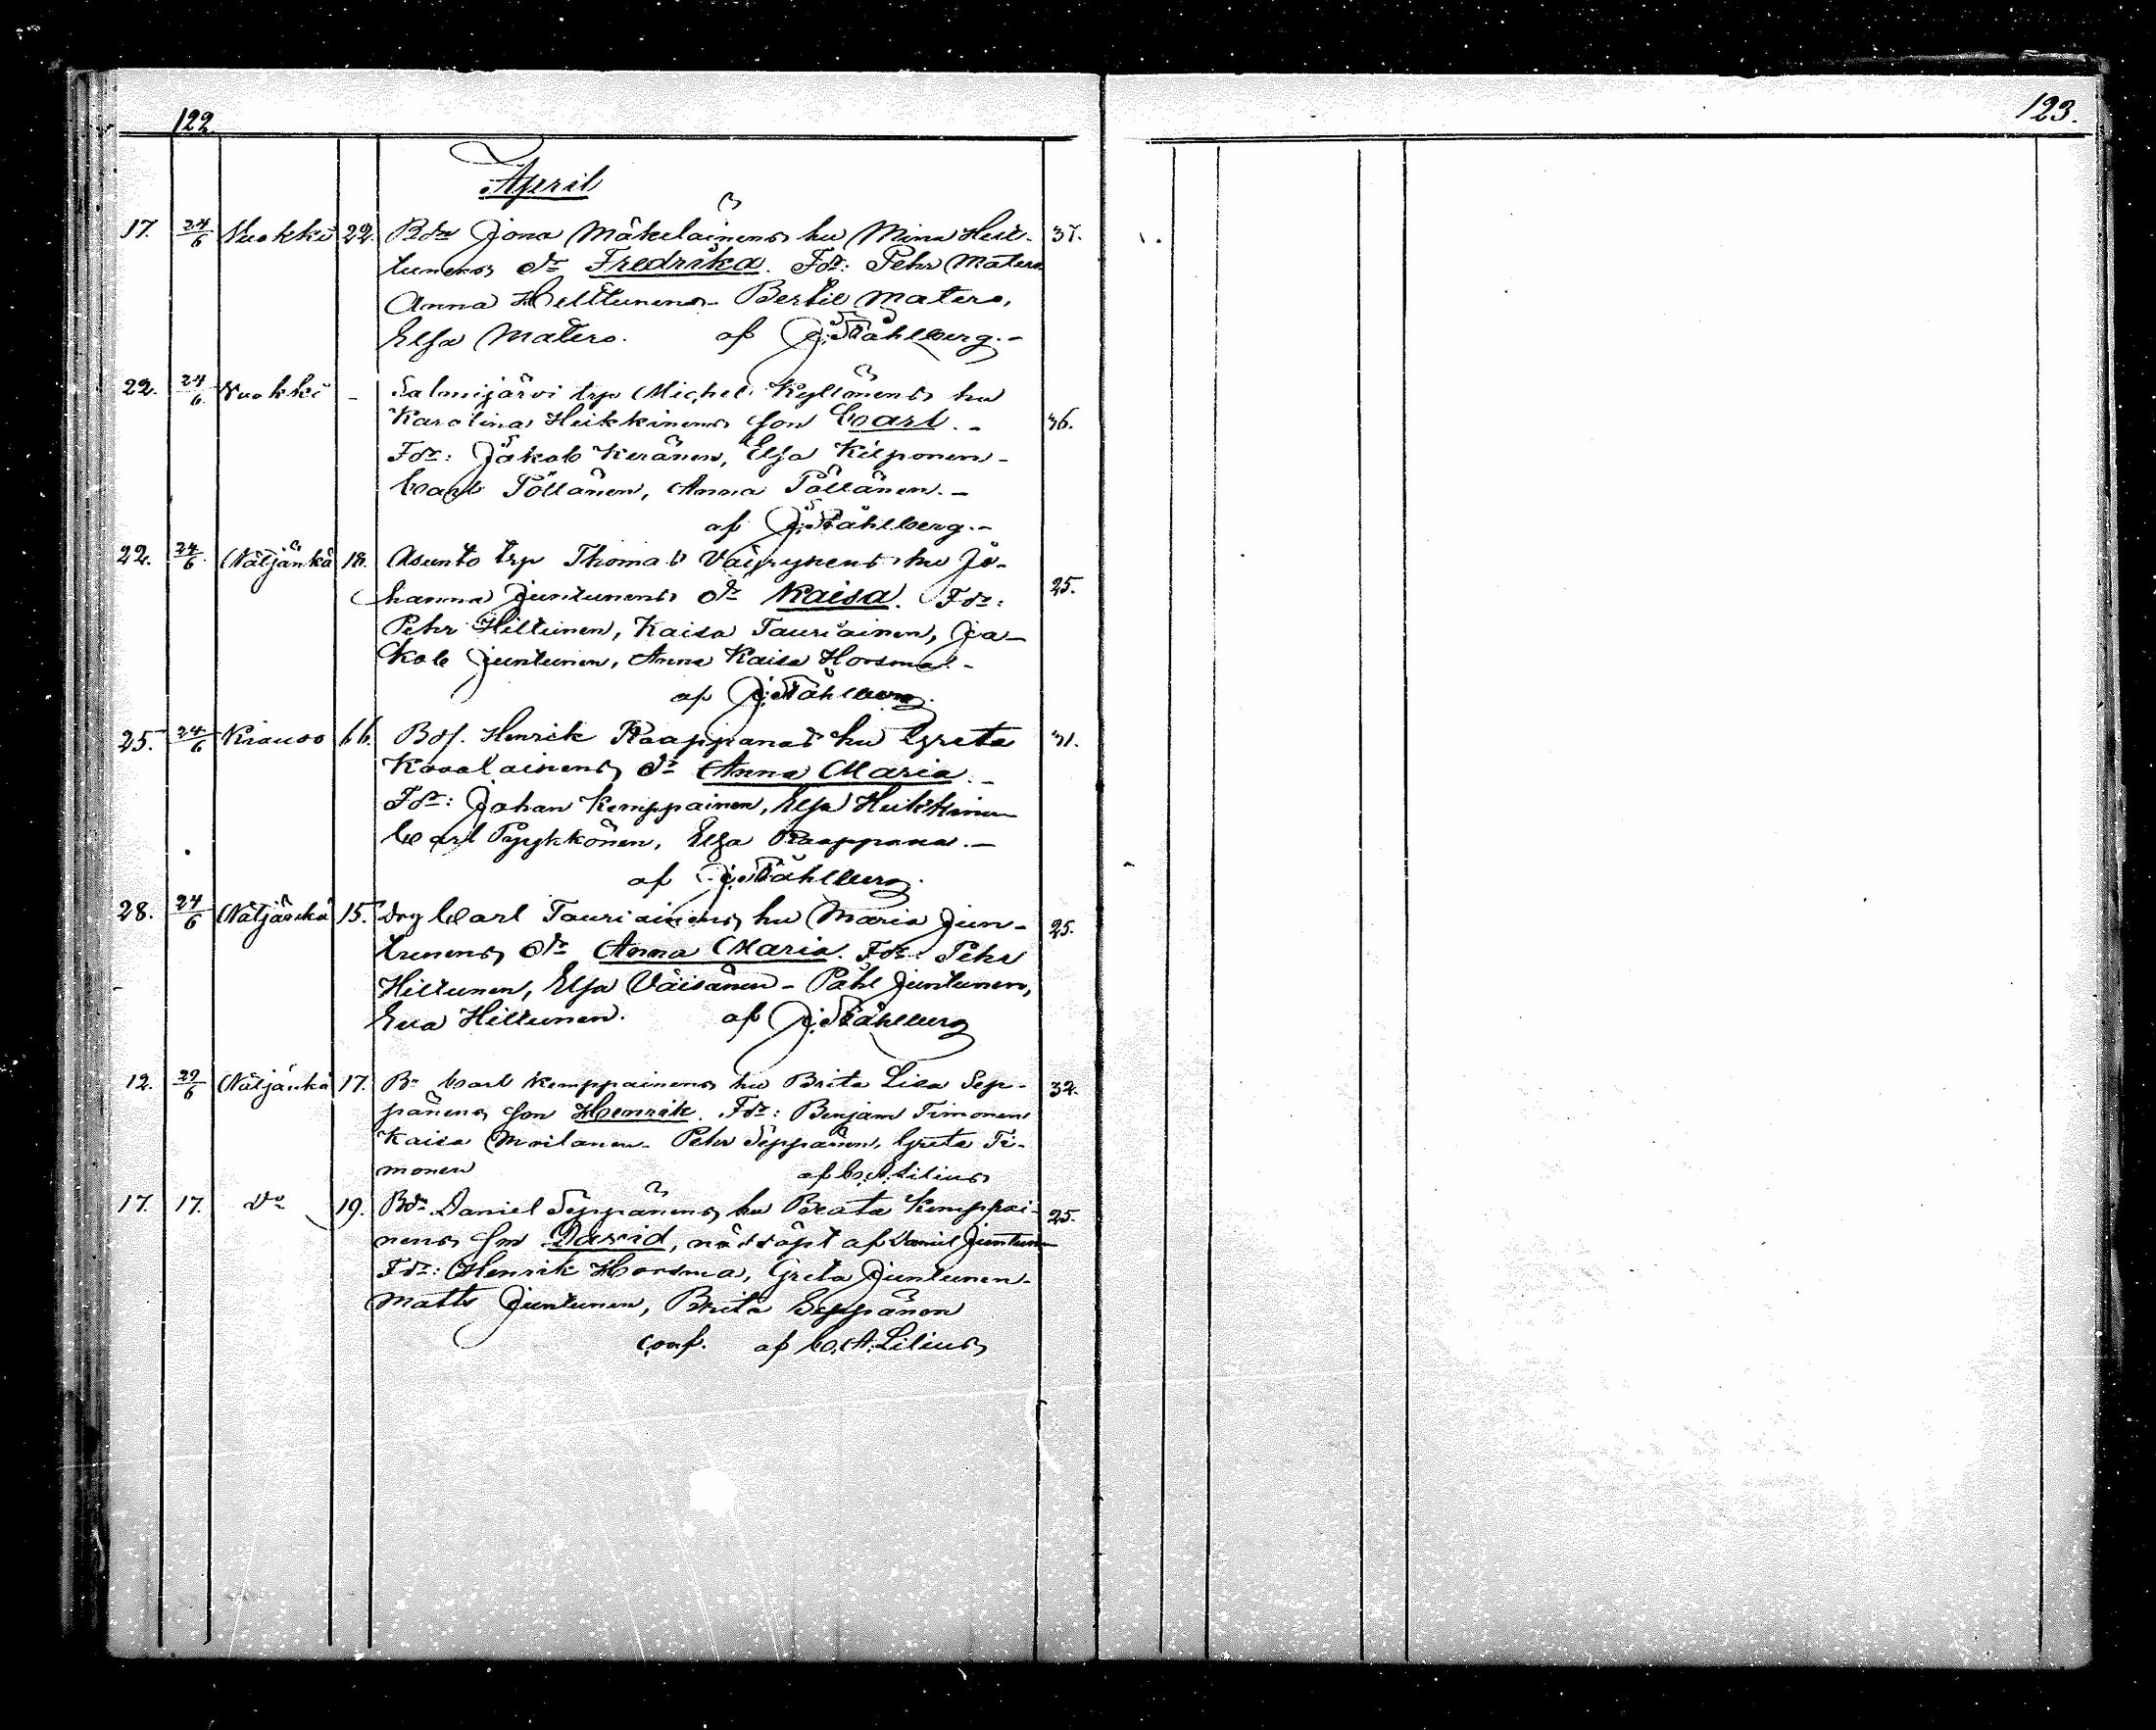 122
123.
April
17. 24/6 Vuokki 22. Bdn Jona Mäkeläinens hu Mina Helt- 37.
tunens dr Fredrika. Fdr: Pehr Matero
Anna Helttunen - Bertil Matero,
Elsa Matero. af J. Ståhlberg.-
22. 24/6 Vuokki - Salmijärvi trp Michel Kyllönens hu
Karolina Heikkinens son Carl.- 36.
Fdr: Jakob Keränen, Elsa Kilponen-
Carl Pöllänen, Anna Pöllänen.-
af J. Ståhlberg.-
22. 24/6. Nätjänkä 18. Asunto trp Thomas Väyrynens hu Jo-
hanna Juntunens dr Kaisa. Fdr: 25.
Pehr Hiltunen, Kaisa Tauriainen, Ja-
kob Juntunen, Anna Kaisa Horsma.-
af J. Ståhlberg.
25. 24/6 Kianvo 66. Bds. Henrik Raappanas hu Greta 31.
Kovalainens dr Anna Maria.-
Fdr: Johan Kemppainen, Elsa Heikkinen
Carl Pyykkönen, Elsa Raappana.-
af J. Ståhlberg.
28. 24/6 Nätjänkä 15. drg Carl Tauriainens hu Maria Jun- 25.
tunens dr Anna Maria. Fdr: Pehr
Hiltunen, Elsa Väisänen - Påhl Juntunen,
Eva Hiltunen. af J. Ståhlberg
12. 29/6 Nätjänkä 17. Bn Carl Kemppainens hu Brita Lisa Sep- 32.
pänens son Henrik. Fdr: Benjam Timonen
Kaisa Moilanen - Pehr Seppänen, Greta Ti-
monen af C. A. Lilius
17. 17. do 19. Bdn Daniel Seppänens hu Beata Kemppai- 25.
nens son David, nöddöpt af Daniel Juntunen
Fdr: Henrik Horsma, Greta Juntunen-
Matts Juntunen, Brita Seppänen
conf. af C. A. Lilius